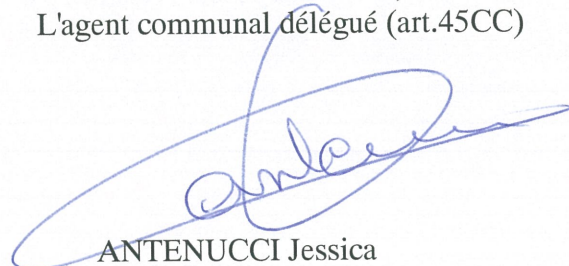 L'agent communal délégué (art.45CC)
ANTENUCCI Jessica